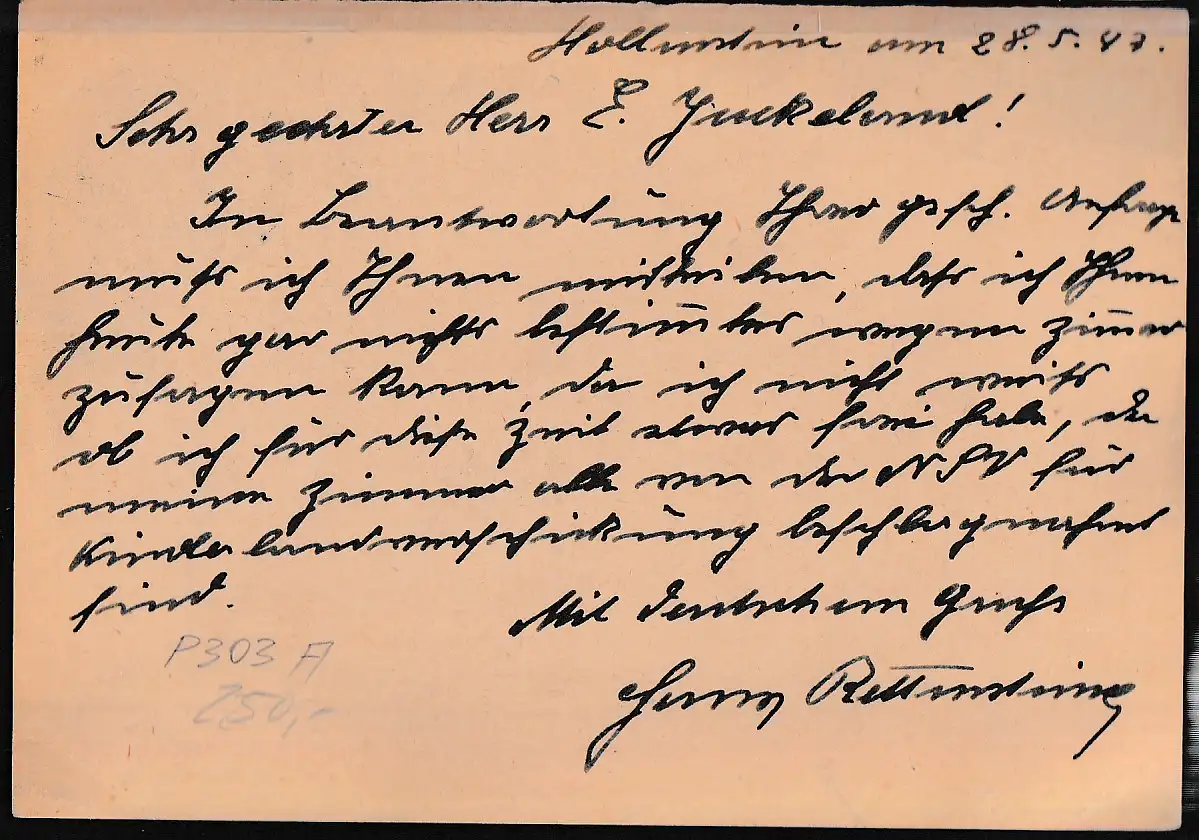 Hollenstein am 28.5.43.
Sehr geehrter Herr E. !
In Beantwortung Ihrer gesch. Anfrage
muß ich Ihnen mitteilen, daß ich Ihnen
heute gar nichts bestimmtes wegen Zimmer
zusagen kann, da ich nicht weiß
ob ich für diese Zeit etwas frei habe, da
meine Zimmer alle von der NSV für
Kinderlandverschickung beschlagnahmt
sind.
Mit Deutschem Gruß
Rettensteiner
P303 A
250,-